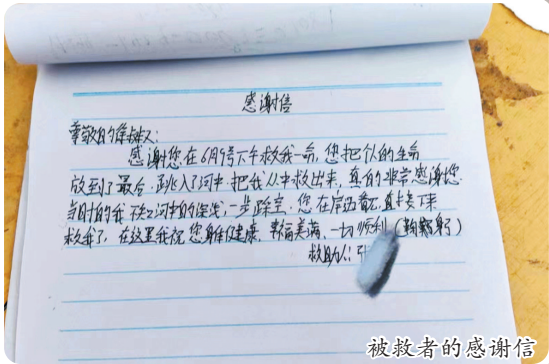 感谢信
尊敬的徐叔叔:
感谢您在6月9号下午救我一命,您把你的生命
放到了最后,跳入了河中,把我从中救出来,真的非常感谢您.
当时的我 不知河中的深浅,一步踩空,您在岸
救我了,在这里我祝您身体健康,幸福美满,一切顺利(鞠躬)
救助人:张
被救者的感谢信